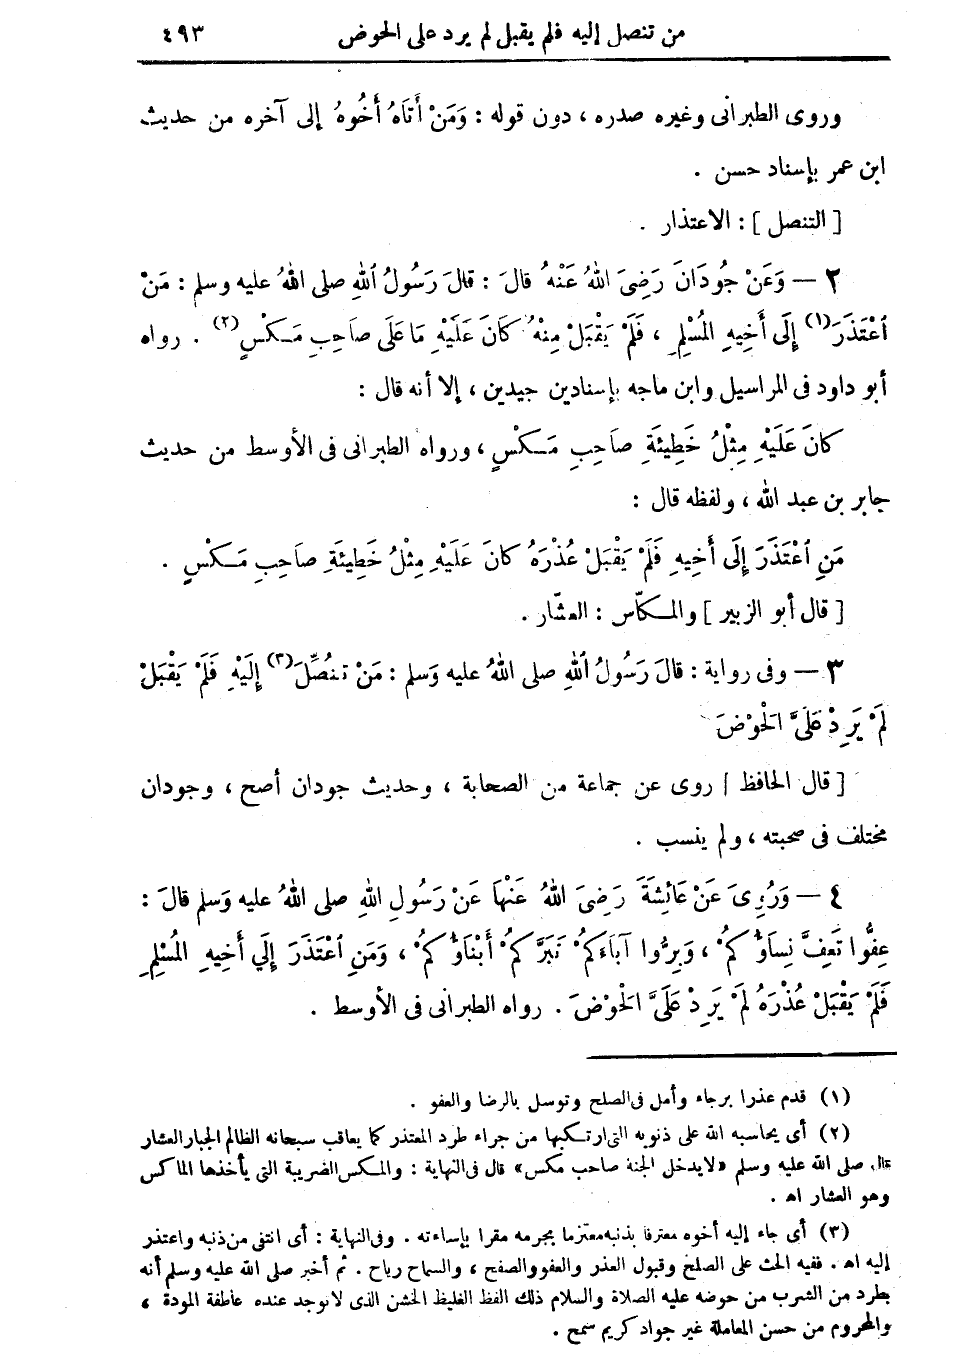 من تنصل إليه فلم يقبل لم يرد على الحوض ٤٩٣
وروى الطبرانى وغيره صدره ، دون قوله : وَمَنْ أَتَاهُ أَخُوهُ إلى آخره من حديث
ابن عمر بإسناد حسن .
[ التنصل ] : الاعتذار .
٢ — وَعَنْ جُودَانَ رَضِىَ اللهُ عَنْهُ قالَ : قالَ رَسُولُ اللهِ صلى اللهُ عليه وسلم : مَنْ
اعْتَذَرَ(١) إِلَى أَخِيهِ المُسْلِمِ ، فَلَمْ يَقْبَلْ مِنْهُ كانَ عَلَيْهِ مَا عَلَى صَاحِبِ مَكْسٍ(٢) . رواه
أبو داود فى المراسيل وابن ماجه بإسنادين جيدين ، إلا أنه قال :
كانَ عَلَيْهِ مِثْلُ خَطِيئَةِ صَاحِبِ مَكْسٍ ، ورواه الطبرانى فى الأوسط من حديث
جابر بن عبد الله ، ولفظه قال :
مَنِ اعْتَذَرَ إِلَى أَخِيهِ فَلَمْ يَقْبَلْ عُذْرَهُ كانَ عَلَيْهِ مِثْلُ خَطِيئَةِ صَاحِبِ مَكْسٍ .
[ قال أبو الزبير ] والمكاّس : العشّار .
٣ — وفى رواية : قالَ رَسُولُ اللهِ صلى اللهُ عليه وَسلم : مَنْ تنُصِّلَ(٣) إِلَيْهِ فَلَمْ يَقْبَلْ
لَمْ يَرِدْ عَلَىَّ الْحَوْضَ
[ قال الحافظ ] روى عن جماعة من الصحابة ، وحديث جودان أصح ، وجودان
مختلف فى صحبته ، ولم ينسب .
٤ — وَرُوِىَ عَنْ عَائِشَةَ رَضِىَ اللهُ عَنْهَا عَنْ رَسُولِ اللهِ صلى اللهُ عليه وَسلم قالَ :
عِفُّوا تَعِفَّ نِسَاؤُكُمْ ، وَبِرُّوا آبَاءَكُمْ تَبَرَّكُمْ أَبْنَاؤُكُمْ ، وَمَنِ اعْتَذَرَ إِلَي أَخِيهِ المُسْلِمِ
فَلَمْ يَقْبَلْ عُذْرَهُ لَمْ يَرِدْ عَلَىَّ الْحَوْضَ . رواه الطبرانى فى الأوسط .
(١) قدم عذرا برجاء وأمل فى الصلح وتوسل بالرضا والعفو .
(٢) أى يحاسبه الله على ذنوبه التى ارتكبها من جراء طرد المعتذر كما يعاقب سبحانه الظالم الجبار العشار
قال صلى الله عليه وسلم «لا يدخل الجنة صاحب مكس» قال فى النهاية : والمكس الضريبة التى يأخذها الماكس
وهو العشار اه .
(٣) أى جاء إليه أخوه معترفا بذنبه معتزما بجرمه مقرا بإساءته . وفى النهاية : أى انتفى من ذنبه واعتذر
إليه اه . ففيه الحث على الصلح وقبول العذر والعفو والصفح ، والسماح رباح . ثم أخبر صلى الله عليه وسلم أنه
يطرد من الشرب من حوضه عليه الصلاة والسلام ذلك الفظ الغليظ الخشن الذى لا توجد عنده عاطفة المودة ،
والمحروم من حسن المعاملة غير جواد كريم سمح .